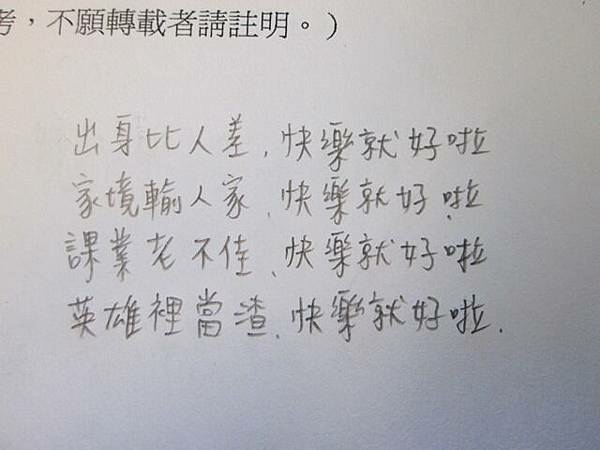 考，不願轉載者請註明。)
出身比人差，快樂就好啦
家境輸人家，快樂就好啦
課業老不佳、快樂就好啦
英雄裡當渣、快樂就好啦.